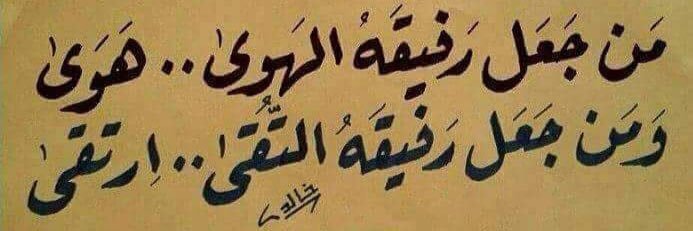 مَن جَعَل رَفيقَهُ الهَوىٰ.. هَوَىٰ
وَمَن جَعَل رَفيقَهُ التُّقىٰ.. اِرتقىٰ
خالد